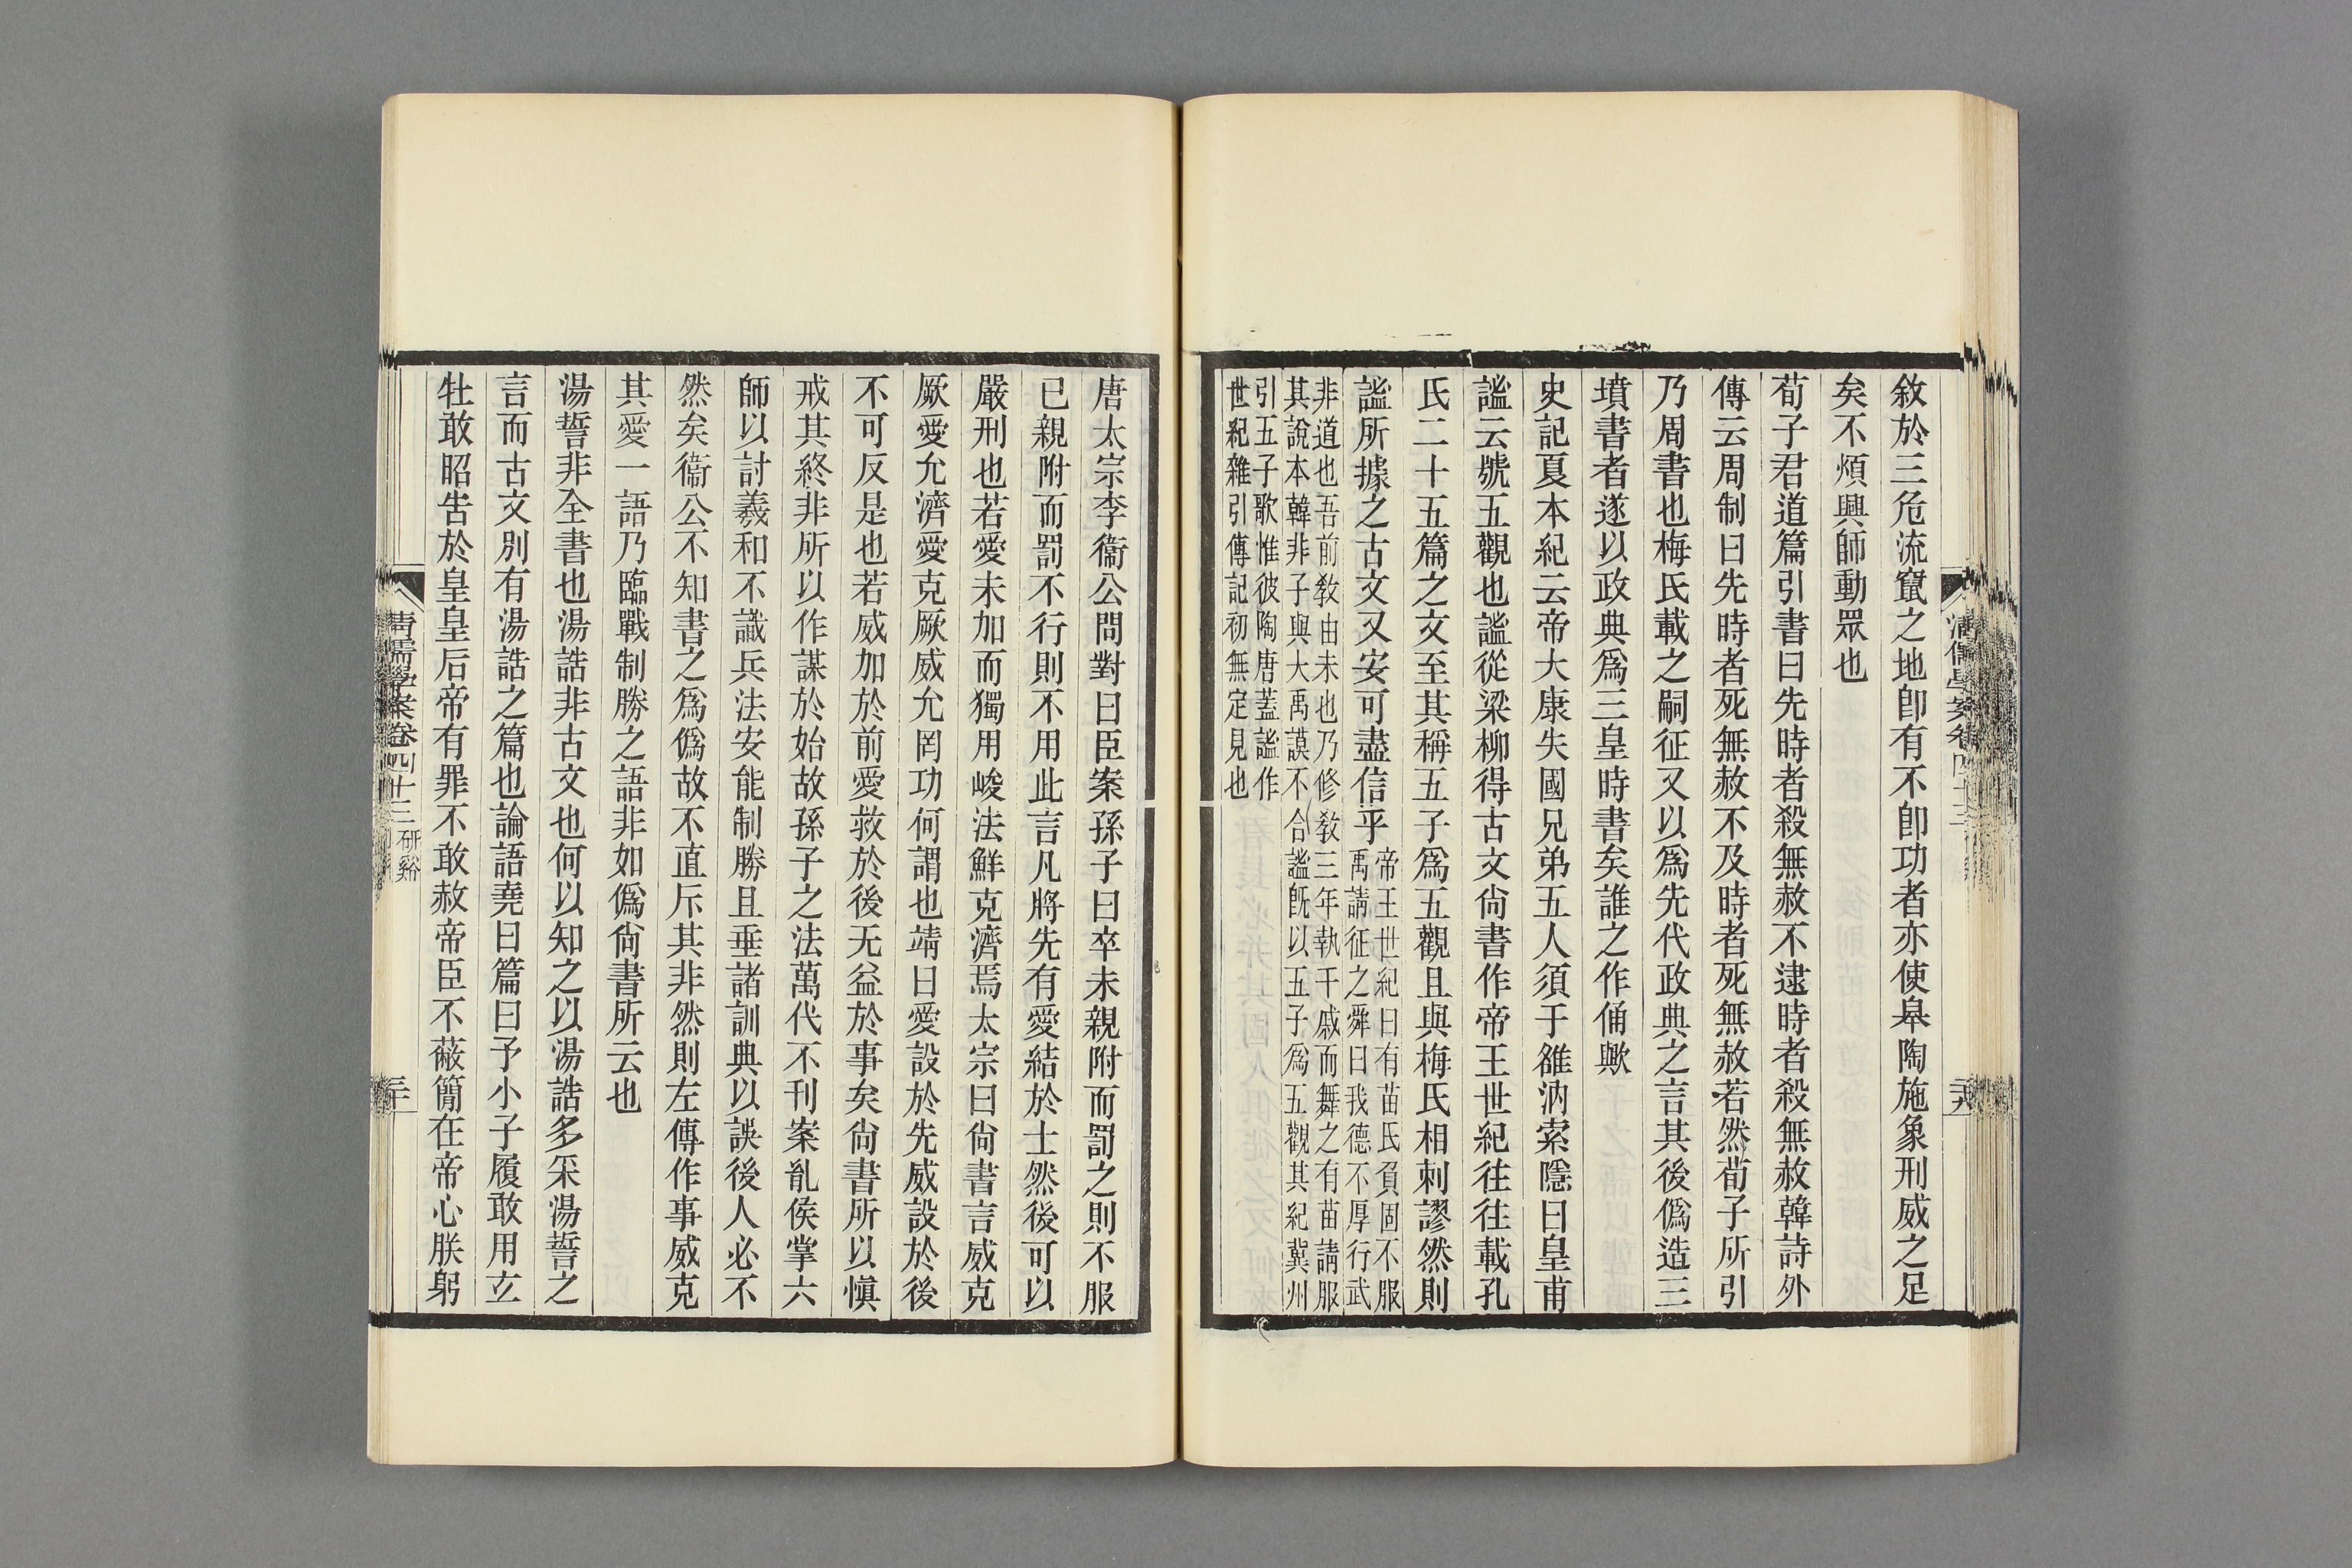 敘於三危流竄之地卽有不卽功者亦使皋陶施象刑威之足
矣不煩興師動眾也
荀子君道篇引書曰先時者殺無赦不逮時者殺無赦韓詩外
傳云周制曰先時者死無赦不及時者死無赦若然荀子所引
乃周書也梅氏載之嗣征又以爲先代政典之言其後僞造三
墳書者遂以政典爲三皇時書矣誰之作俑歟
史記夏本紀云帝大康失國兄弟五人須于雒汭索隱曰皇甫
謐云號五觀也謐從梁柳得古文尙書作帝王世紀往往載孔
氏二十五篇之文至其稱五子爲五觀且與梅氏相刺謬然則
謐所據之古文又安可盡信乎
帝王世紀曰有苗氏負固不服
禹請征之舜曰我德不厚行武
非道也吾前敎由未也乃修敎三年執干戚而舞之有苗請服
其說本韓非子與大禹謨不合謐旣以五子爲五觀其紀冀州
引五子歌惟彼陶唐蓋謐作
世紀雜引傳記初無定見也
唐太宗李衞公問對曰臣案孫子曰卒未親附而罰之則不服
已親附而罰不行則不用此言凡將先有愛結於士然後可以
嚴刑也若愛未加而獨用峻法鮮克濟焉太宗曰尙書言威克
厥愛允濟愛克厥威允罔功何謂也靖曰愛設於先威設於後
不可反是也若威加於前愛救於後无益於事矣尙書所以愼
戒其終非所以作謀於始故孫子之法萬代不刊案胤侯掌六
師以討羲和不識兵法安能制勝且垂諸訓典以誤後人必不
然矣衞公不知書之爲僞故不直斥其非然則左傳作事威克
其愛一語乃臨戰制勝之語非如僞尙書所云也
湯誓非全書也湯誥非古文也何以知之以湯誥多采湯誓之
言而古文別有湯誥之篇也論語堯曰篇曰予小子履敢用玄
牡敢昭告於皇皇后帝有罪不敢赦帝臣不蔽簡在帝心朕躬
清儒學案卷四十三 研谿
三十